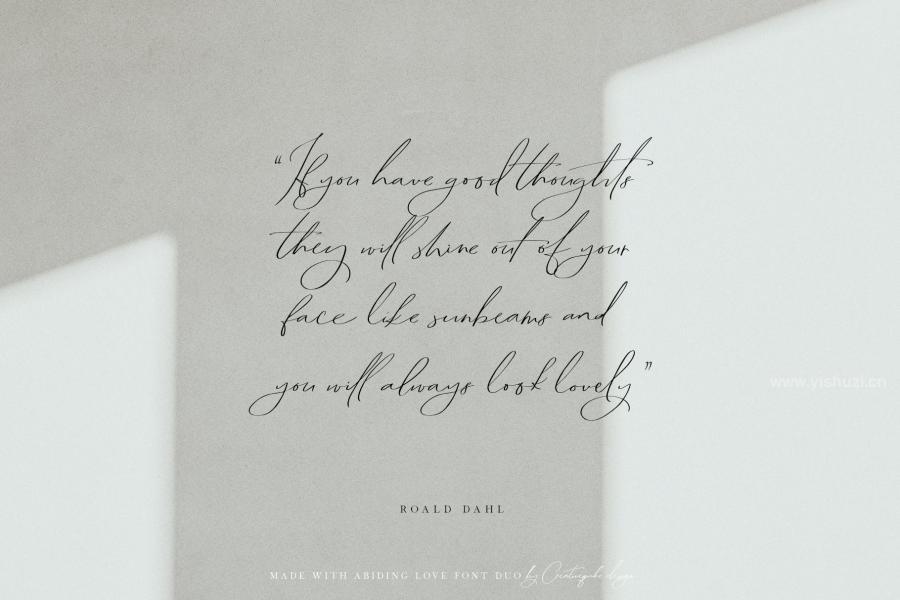 “If you have good thoughts
they will shine out of your
face like sunbeams and
you will always look lovely”
www.yishuzi.cn
ROALD DAHL
MADE WITH ABIDING LOVE FONT DUO by